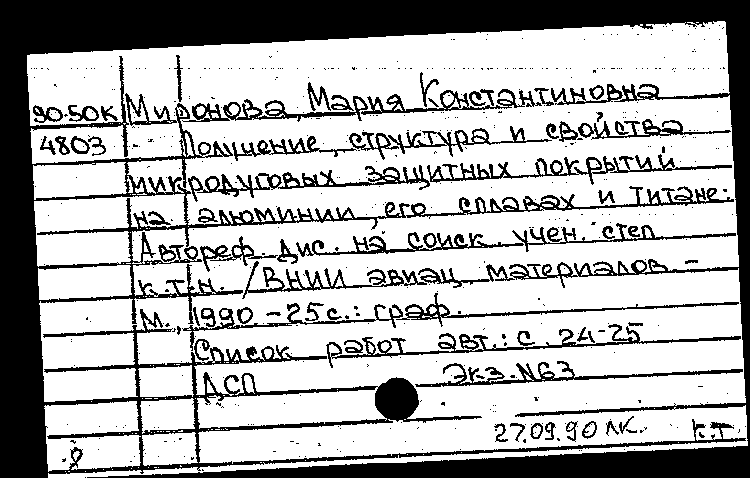 90-50К Миронова, Мария Константиновна
4803 Получение, структура и свойства
микродуговых защитных покрытий
на алюминии, его сплавах и титане:
Автореф. дис. на соиск. учен. степ
к.т.н. /ВНИИ авиац. материалов. -
М., 1990 - 25 с.: граф.
Список работ авт.: с. 24-25
ДСП Экз. N63
27.09.90 ЛК. к.т